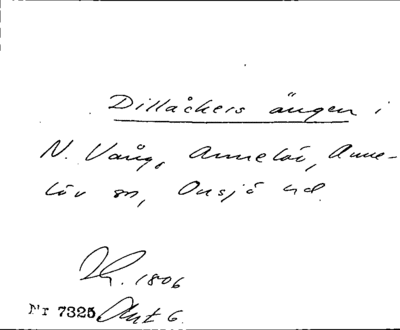 Dillåckers ängen i
N. Vång, Annelöv, Anne-
löv sn, Onsjö hd.
1806
Nr 7325 Akt 6.